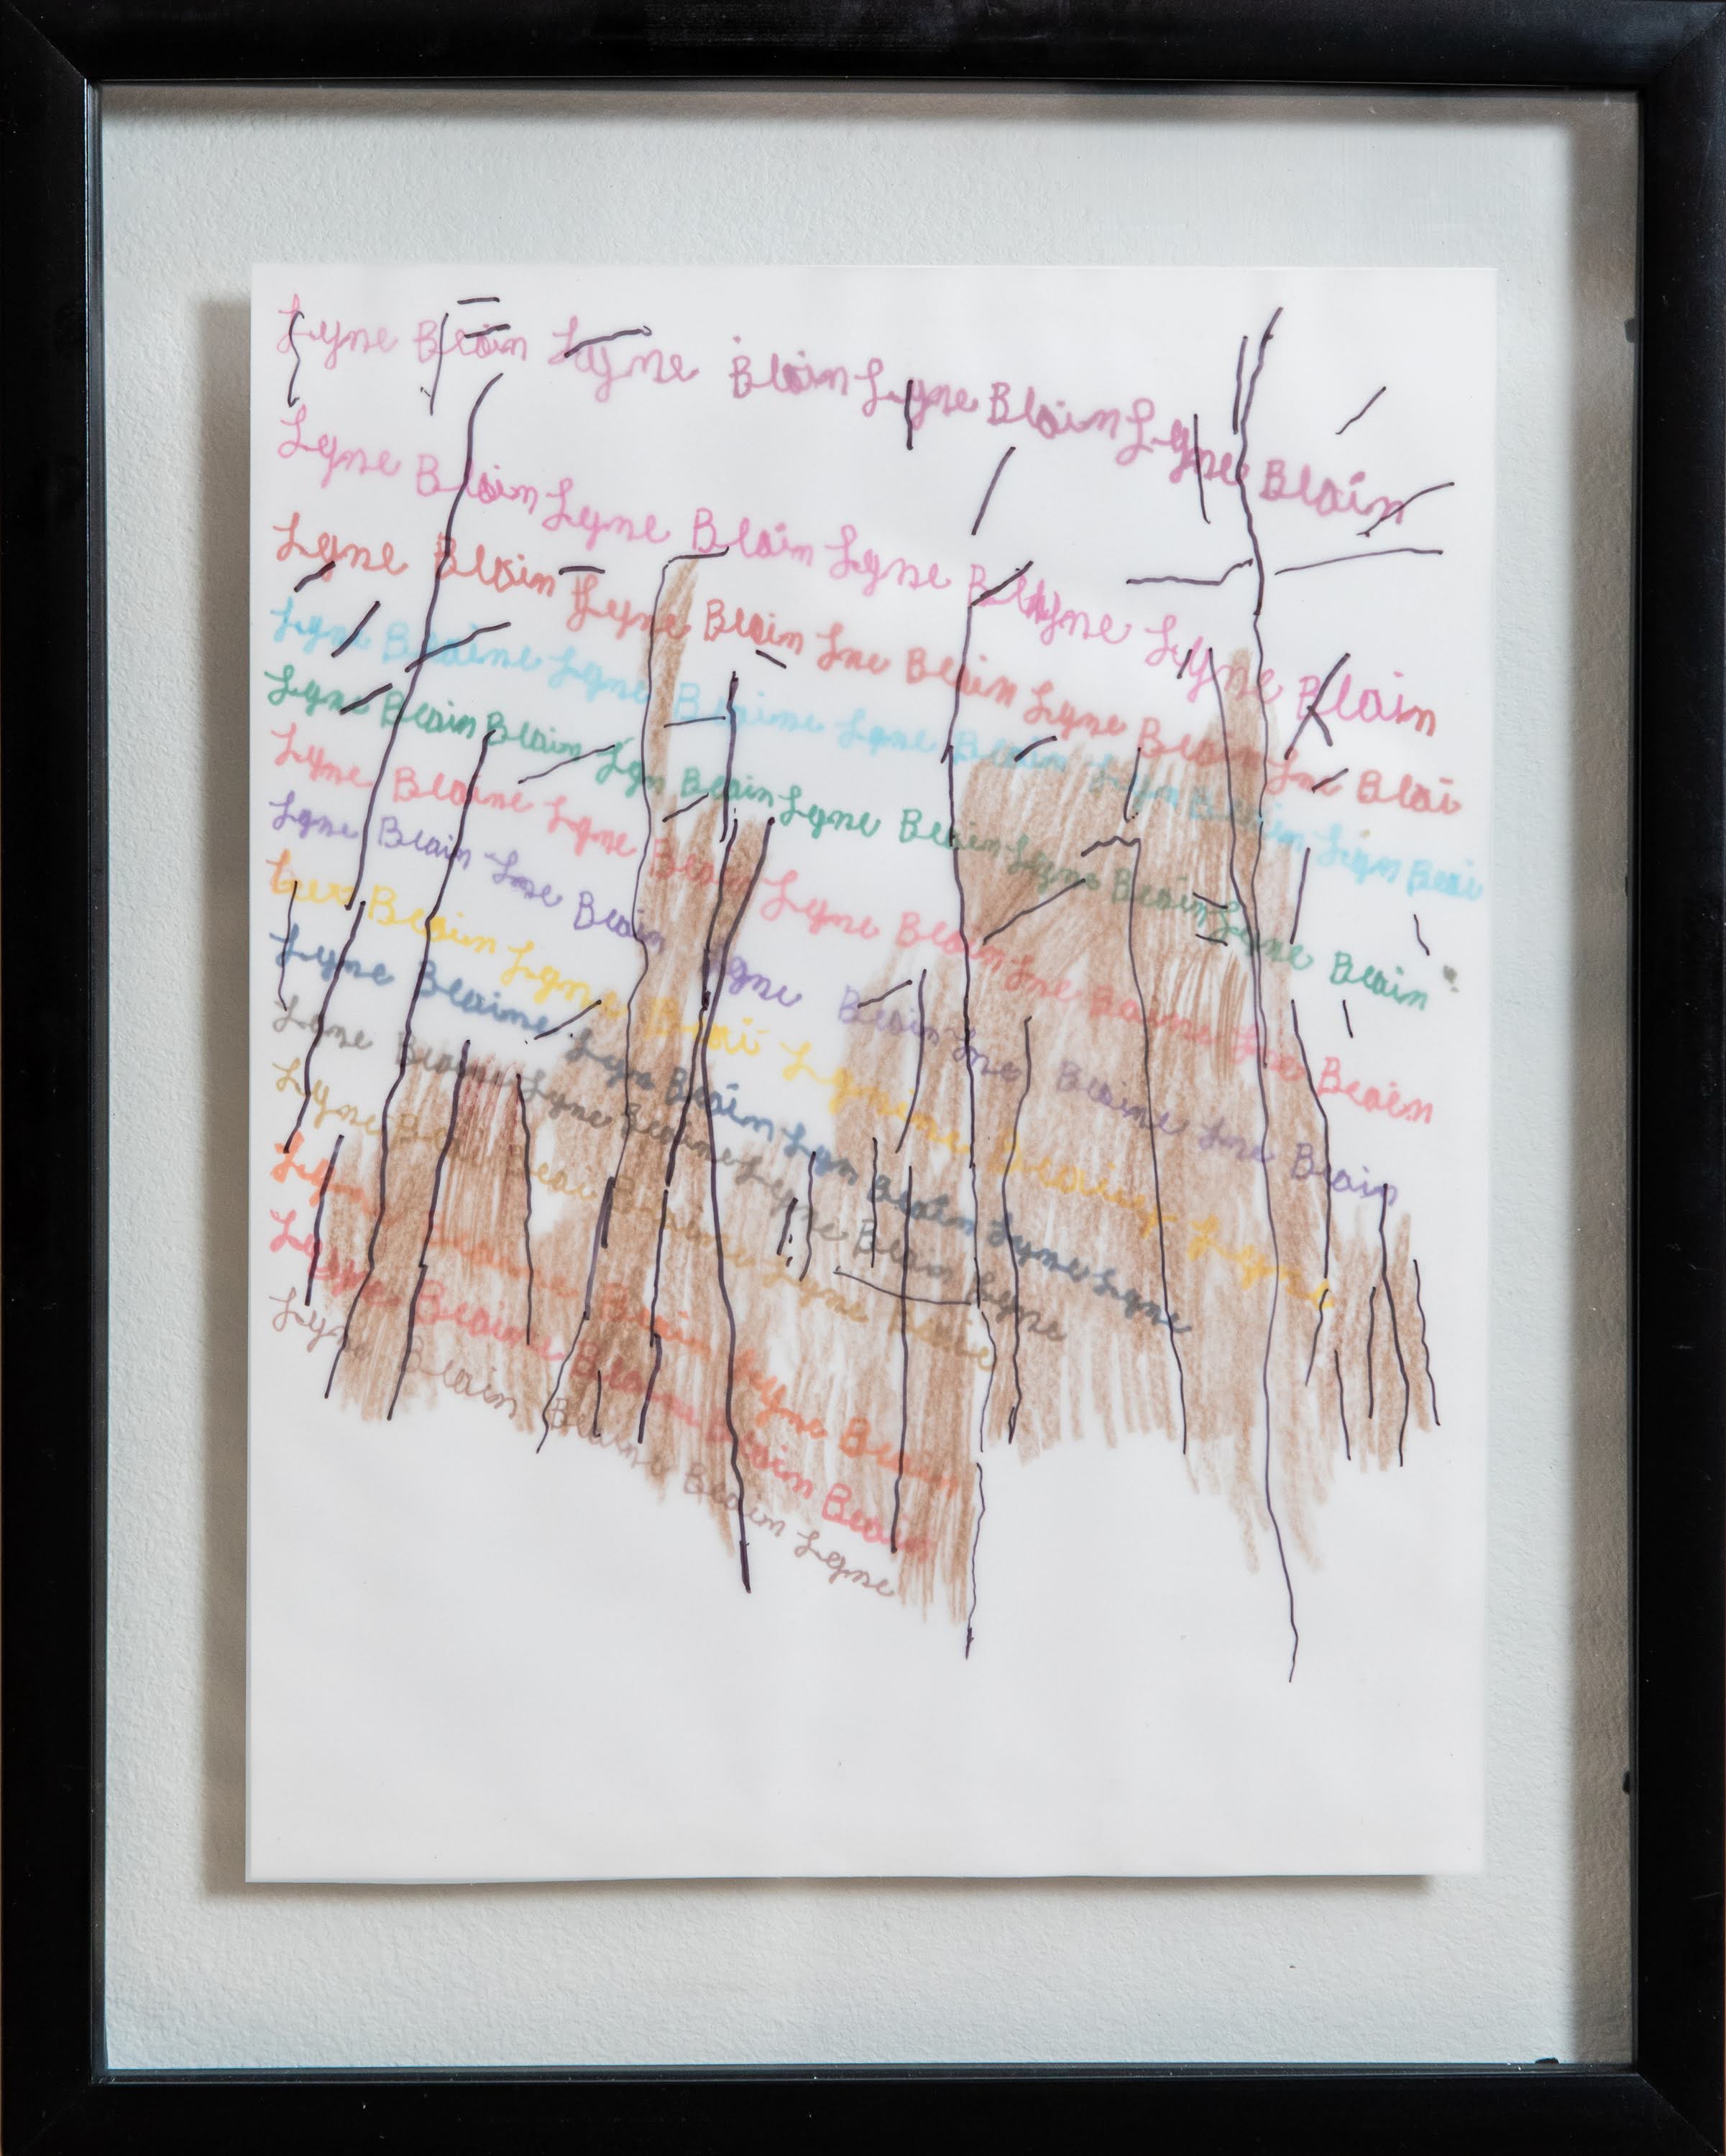 Lyne Blain Lyne Blain Lyne Blain Lyne Blain
Lyne Blain Lyne Blain Lyne Lyne Lyne Blain
Lyne Blain Lyne Blain Lne Blain Lyne Blain Lne Blai
Lyne Blaine Lyne Blaine Lyne Blain Lyn Blain Lyn Blai
Lyne Blain Blain Lyn Blain Lyne Blain Lyne Blain Lyne Blain
Lyne Blaine Lyne Blain Lyne Blain Lne Blaine Lne Blain
Lyne Blain Lne Blain Lyne Blain Lne Blaine Lne Blain
Blain Lyne Blai Lyne Lyne
Lyne Blaine Lyn Blain Lyn Blain Lyne Lyne
Lyne Blaine Lyne Blaine Lyne Blain Lyne
Lyne Blai Blaine Lyne
Lyne Blaine Blain Lyne Blain
Lyne Blaine Blain Blain Blain
Lyne Blain Blaine Blain Lyne